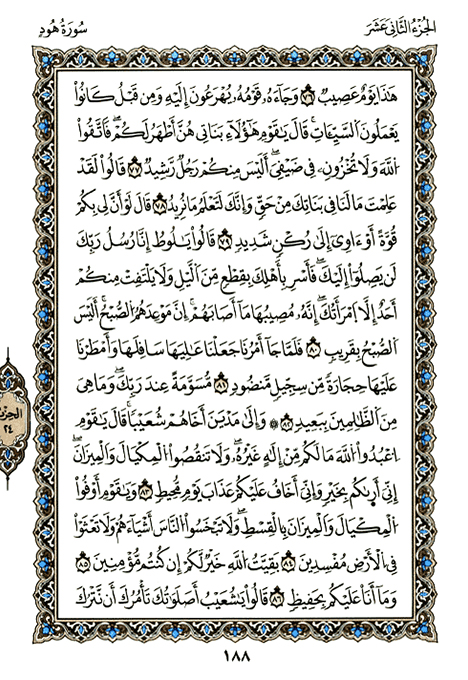 الجُزْءُ الثَّانِي عَشَرَ
سُورَةُ هُودٍ
هَذَا يَوْمٌ عَصِيبٌ ٧٦ وَجَاءَهُ قَوْمُهُ يُهْرَعُونَ إِلَيْهِ وَمِن قَبْلُ كَانُواْ
يَعْمَلُونَ السَّيِّئَاتِ قَالَ يَاقَوْمِ هَؤُلَاءِ بَنَاتِي هُنَّ أَطْهَرُ لَكُمْ فَاتَّقُواْ
اللَّهَ وَلَا تُخْزُونِ فِي ضَيْفِي أَلَيْسَ مِنكُمْ رَجُلٌ رَشِيدٌ ٧٧ قَالُواْ لَقَدْ
عَلِمْتَ مَا لَنَا فِي بَنَاتِكَ مِنْ حَقٍّ وَإِنَّكَ لَتَعْلَمُ مَا نُرِيدُ ٧٨ قَالَ لَوْ أَنَّ لِي بِكُمْ
قُوَّةً أَوْ ءَاوِي إِلَى رُكْنٍ شَدِيدٍ ٧٩ قَالُواْ يَالُوطُ إِنَّا رُسُلُ رَبِّكَ
لَن يَصِلُواْ إِلَيْكَ فَأَسْرِ بِأَهْلِكَ بِقِطْعٍ مِنَ اللَّيْلِ وَلَا يَلْتَفِتْ مِنكُمْ
أَحَدٌ إِلَّا امْرَأَتُكَ إِنَّهُ مُصِيبُهَا مَا أَصَابَهُمْ إِنَّ مَوْعِدَهُمُ الصُّبْحُ أَلَيْسَ
الصُّبْحُ بِقَرِيبٍ ٨٠ فَلَمَّا جَاءَ امْرُنَا جَعَلْنَا عَالِيَهَا سَافِلَهَا وَأَمْطَرْنَا
عَلَيْهَا حِجَارَةً مِن سِجِّيلٍ مَنضُودٍ ٨١ مُسَوَّمَةً عِندَ رَبِّكَ وَمَا هِيَ
مِنَ الظَّالِمِينَ بِبَعِيدٍ ٨٢ ۞ وَإِلَى مَدْيَنَ أَخَاهُمْ شُعَيْبًا قَالَ يَاقَوْمِ
اعْبُدُواْ اللَّهَ مَا لَكُم مِنْ إِلَهٍ غَيْرُهُ وَلَا تَنقُصُواْ الْمِكْيَالَ وَالْمِيزَانَ
إِنِّي أَرَاكُم بِخَيْرٍ وَإِنِّي أَخَافُ عَلَيْكُمْ عَذَابَ يَوْمٍ مُحِيطٍ ٨٣ وَيَاقَوْمِ أَوْفُواْ
الْمِكْيَالَ وَالْمِيزَانَ بِالْقِسْطِ وَلَا تَبْخَسُواْ النَّاسَ أَشْيَاءَهُمْ وَلَا تَعْثَوْاْ
فِي الْأَرْضِ مُفْسِدِينَ ٨٤ بَقِيَّتُ اللَّهِ خَيْرٌ لَكُمْ إِن كُنتُم مُؤْمِنِينَ ٨٥
وَمَا أَنَا عَلَيْكُم بِحَفِيظٍ ٨٦ قَالُواْ يَاشُعَيْبُ أَصَلَوَاتُكَ تَأْمُرُكَ أَن نَتْرُكَ
٢٤
١٨٨